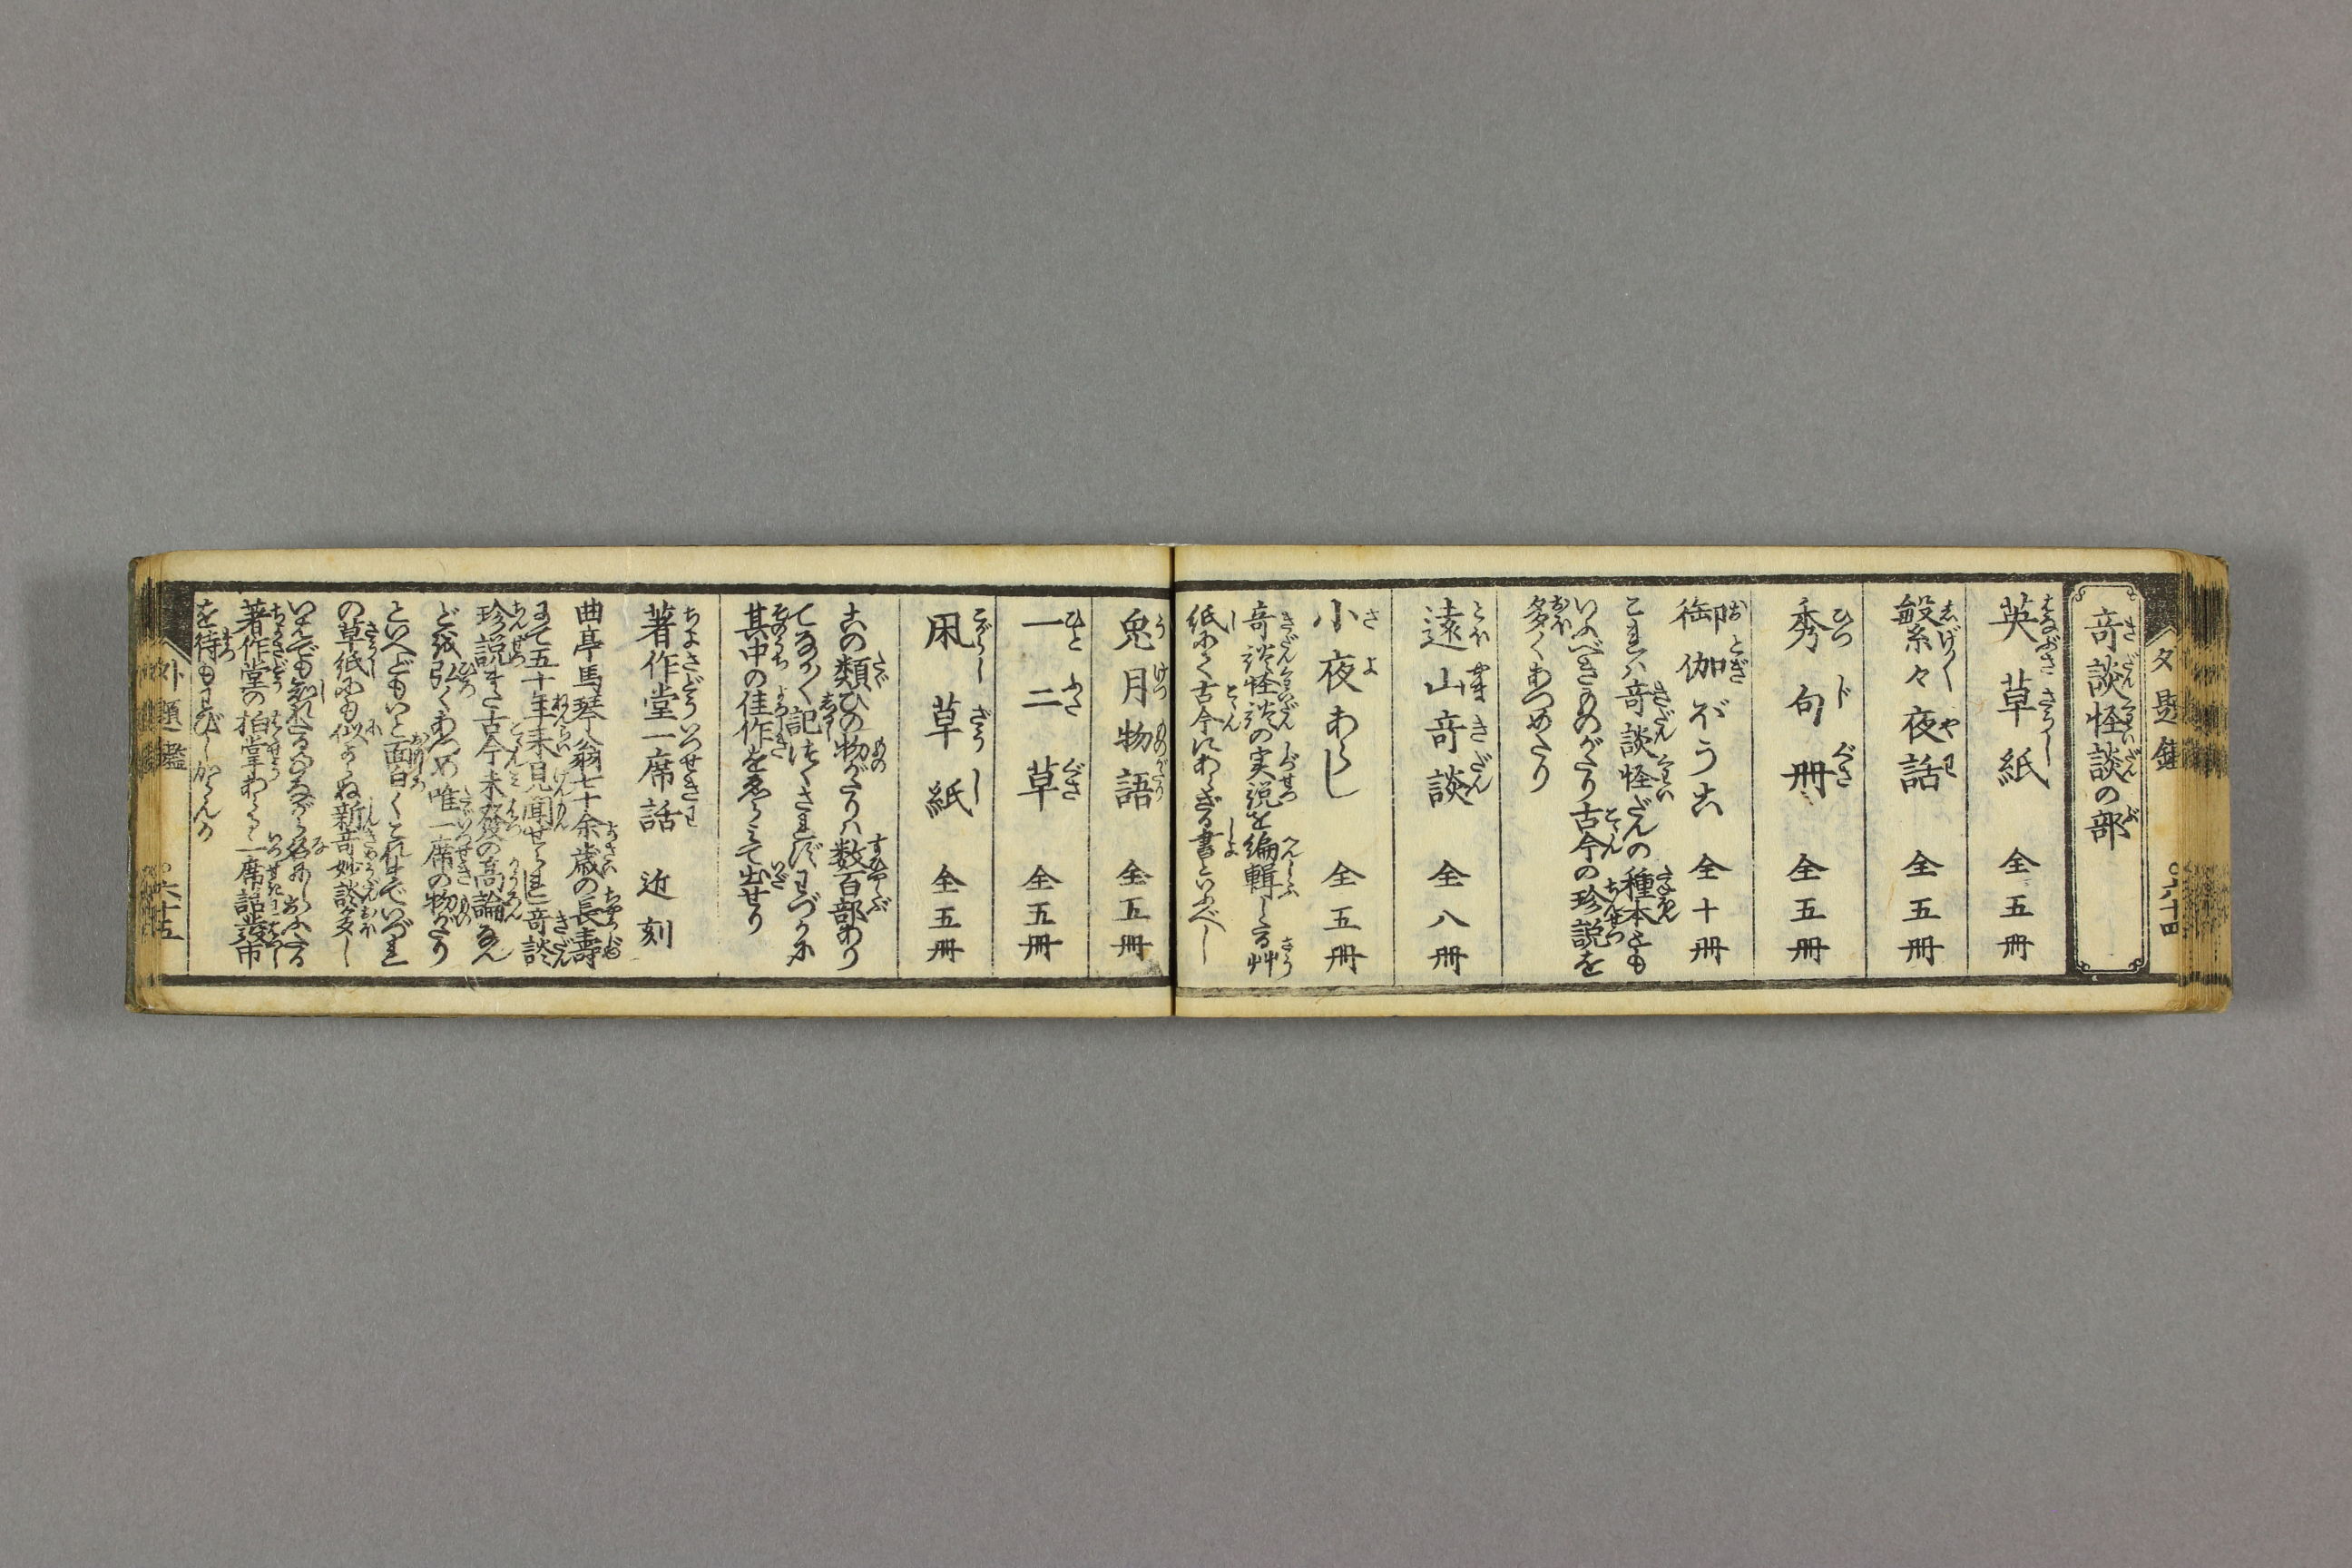 奇談怪談の部
英草紙 全五冊
繁々夜話 全五冊
秀句冊 全五冊
御伽ばうこ 全十冊
これハ奇談怪だんの種本とも
いふべきものがたり古今の珍説を
多くあつめたり
遠山奇談 全八冊
小夜あらし 全五冊
奇談怪談の実説を編輯したる艸
紙にて古今にわたざる書といふべし
兎月物語 全五冊
一二草 全五冊
凩草紙 全五冊
この類ひの物がたりハ数百部あり
てながく記しつくされずわづかに
其中の佳作をゑらみて出せり
著作堂一席話 近刻
曲亭馬琴翁七十余歳の長壽
にて五十年来見聞せられし奇談
珍説また古今未發の高論なん
どを弘くあつめ唯一席の物がたり
といへどもいと面白くこれまでいづれ
の草紙にも似よらぬ新奇妙談多し
いはんでも知れたる
著作堂の拍掌わらく一席話發市
を待もわびしからんか
外題鑑 六十五
外題鑑 六十四